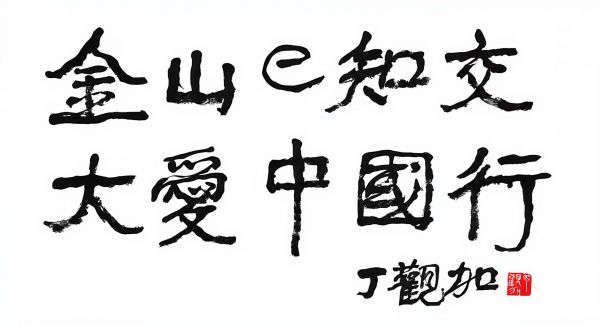 金山e知交
大愛中國行
丁觀加